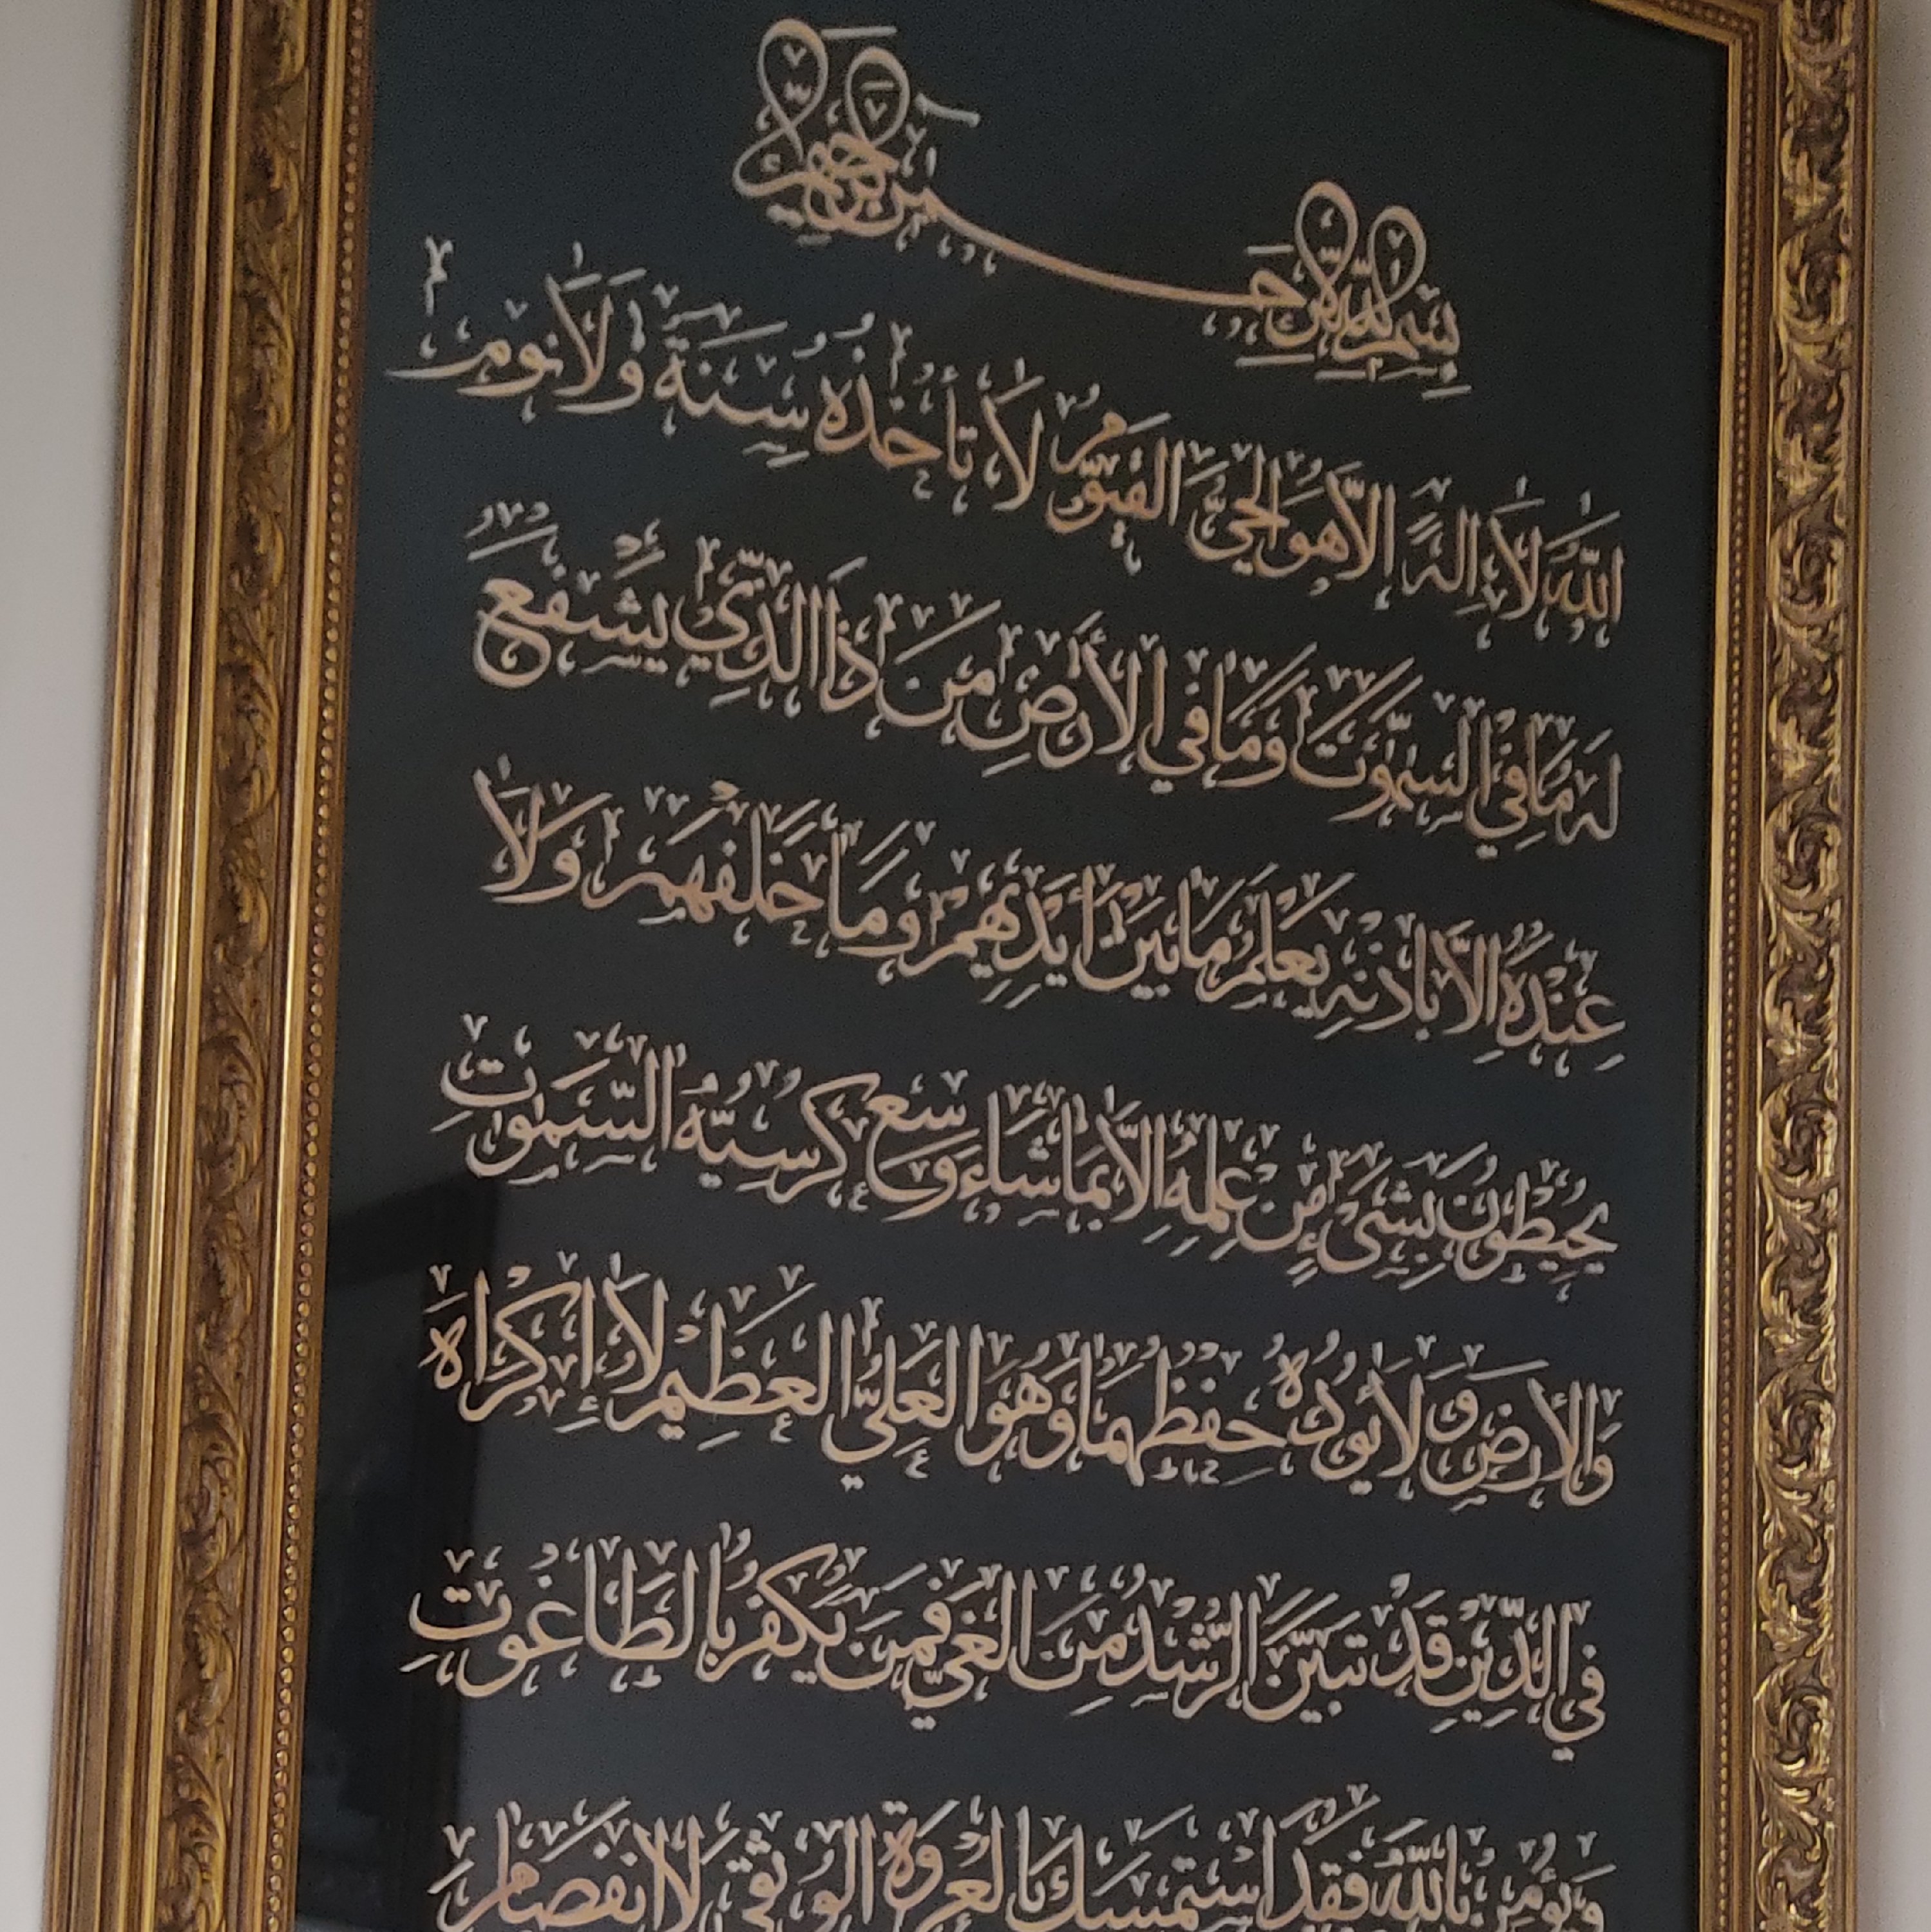 بسم الله الرحمن الرحيم
الله لا اله الا هو الحي القيوم لا تأخذه سنة ولا نوم
له ما في السموت وما في الأرض من ذا الذي يشفع
عنده الا باذنه يعلم ما بين أيديهم وما خلفهم ولا
يحيطون بشيء من علمه الا بما شاء وسع كرسيه السموت
والأرض ولا يؤده حفظهما وهو العلي العظيم لا إكراه
في الدين قد تبين الرشد من الغي فمن يكفر بالطاغوت
ويؤمن بالله فقد استمسك بالعروة الوثقى لا انفصام